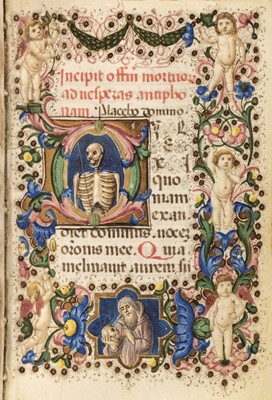 Incipit offm mortuor
ad uesperas antipho
nam. Placebo domino.
D I
lexi
quo
niam
exau
diet dominus uocez
orōnis mee. Quia
inclinauit aurem su